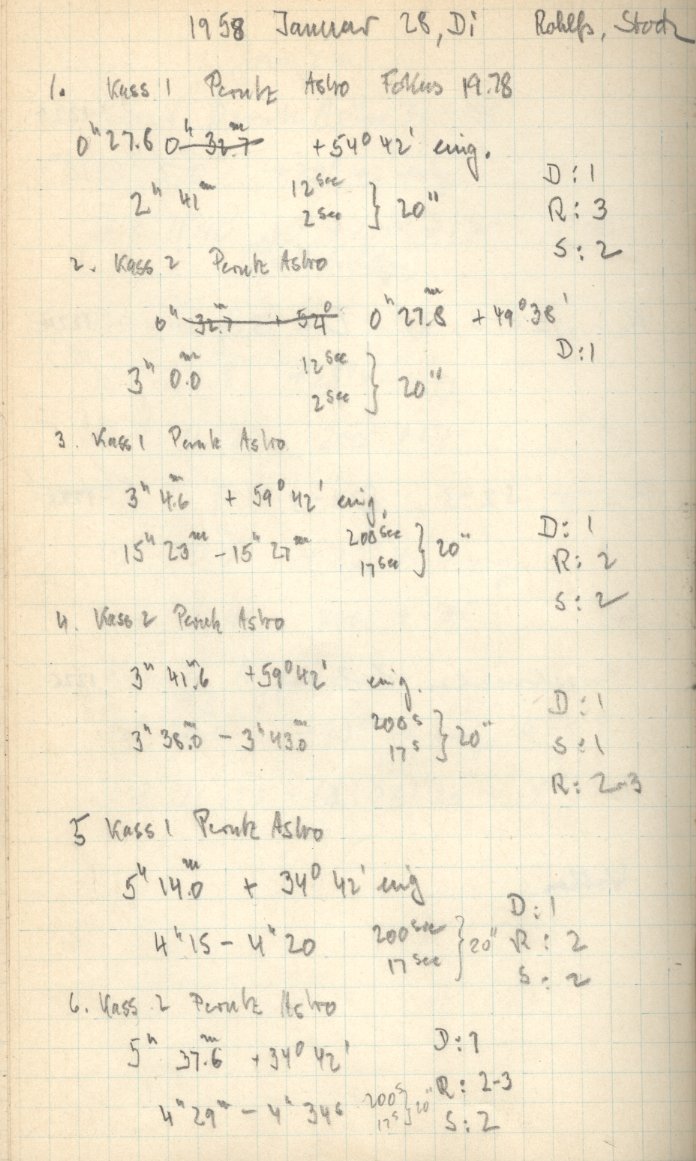 1958 Januar 28, Di Rohlfs, Stock
1. Kass 1 Perutz Astro Fokus 19.78
0h 27.6 0h 32.7m +54° 42' eing.
2h 41m 12sec 2sec } 20" D: 1
R: 3
S: 2
2. Kass 2 Perutz Astro
0h 32.7m + 54° 0h 27.8m +49° 38'
3h 0.0m 12sec 2sec } 20" D: 1
3. Kass 1 Perutz Astro
3h 4.6m + 59° 42' eing.
15h 23m - 15h 27m 200sec 17sec } 20" D: 1
R: 2
S: 2
4. Kass 2 Perutz Astro
3h 41.6m +59° 42' eing.
3h 38.0m - 3h 43.0m 200s 17s } 20" D: 1
S: 1
R: 2-3
5 Kass 1 Perutz Astro
5h 14.0m + 34° 42' eing
4h 15 - 4h 20 200sec 17sec } 20" D: 1
R: 2
S: 2
6. Kass 2 Perutz Astro
5h 37.6m + 34° 42' D: 1
4h 29m - 4h 34 200s 17s } 20" R: 2-3
S: 2